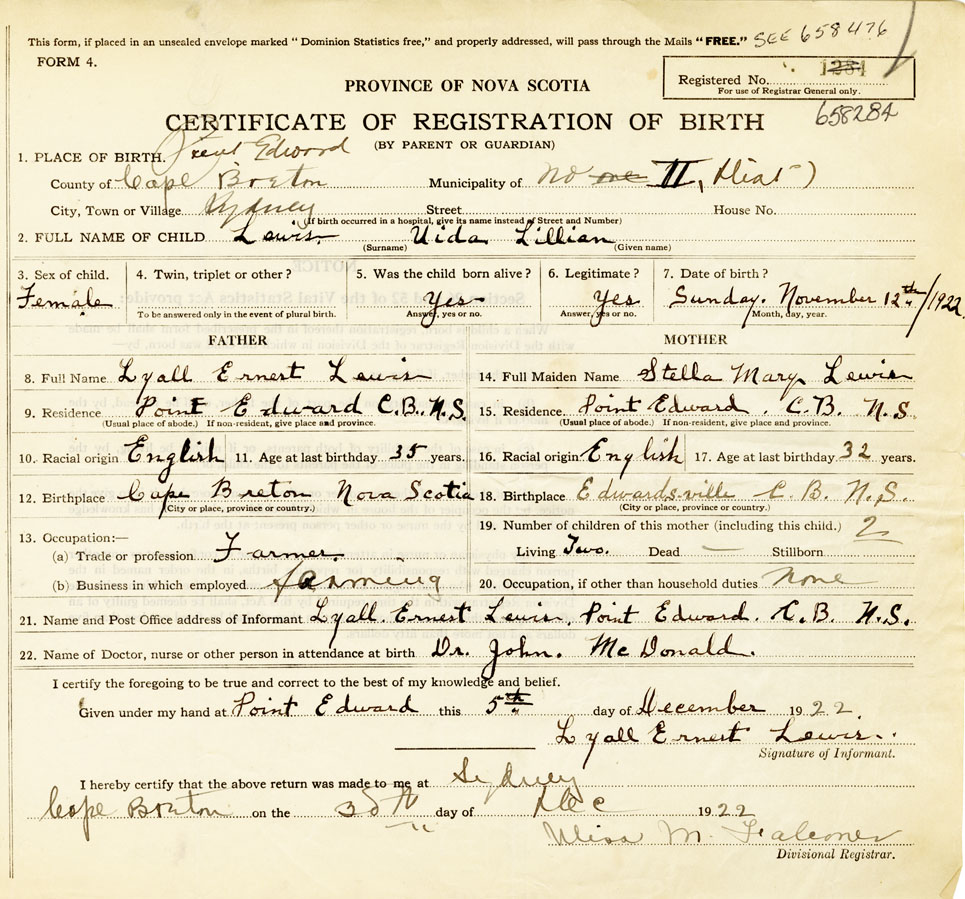 This form, if placed in an unsealed envelope marked "Dominion Statistics free," and properly addressed, will pass through the Mails "FREE." SEE 658476
FORM 4.
Registered No. 1284
For use of Registrar General only.
PROVINCE OF NOVA SCOTIA
CERTIFICATE OF REGISTRATION OF BIRTH 658284
(BY PARENT OR GUARDIAN)
1. PLACE OF BIRTH. Edward
County of Cape Breton Municipality of No one II, Dist)
City, Town or Village Sydney Street House No.
(If birth occurred in a hospital, give its name instead of Street and Number)
2. FULL NAME OF CHILD Lewis. Vida Lillian
(Surname) (Given name)
3. Sex of child. 4. Twin, triplet or other? 5. Was the child born alive? 6. Legitimate? 7. Date of birth?
Female Yes Yes Sunday. November 12th/1922
To be answered only in the event of plural birth. Answer, yes or no. Answer, yes or no. Month, day, year.
FATHER MOTHER
8. Full Name Lyall Ernest Lewis 14. Full Maiden Name Stella Mary Lewis
9. Residence Point Edward C.B. N.S. 15. Residence. Point Edward. C.B. N.S.
(Usual place of abode.) If non-resident, give place and province. (Usual place of abode.) If non-resident, give place and province.
10. Racial origin English 11. Age at last birthday 35 years. 16. Racial origin English 17. Age at last birthday 32 years.
12. Birthplace Cape Breton Nova Scotia 18. Birthplace Edwardsville C.B. N.S.
(City or place, province or country.) (City or place, province or country.)
13. Occupation:— 19. Number of children of this mother (including this child.) 2
(a) Trade or profession Farmer. Living Two. Dead — Stillborn
(b) Business in which employed farming 20. Occupation, if other than household duties None
21. Name and Post Office address of Informant Lyall. Ernest Lewis, Point Edward. C.B. N.S.
22. Name of Doctor, nurse or other person in attendance at birth Dr. John. McDonald.
I certify the foregoing to be true and correct to the best of my knowledge and belief.
Given under my hand at Point Edward this 5th day of December 1922.
Lyall Ernest Lewis.
Signature of Informant.
I hereby certify that the above return was made to me at Sydney
Cape Breton on the 30th day of Dec 1922
Miss M. Falconer
Divisional Registrar.